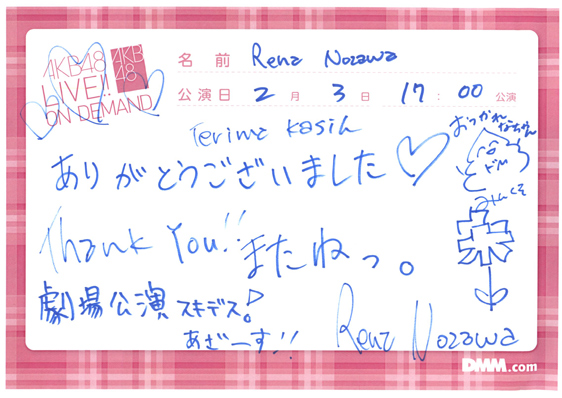 AKB48
LIVE!!
ON DEMAND
AKB
48
名前 Rena Nozawa
公演日 2月3日 17:00 公演
Terima kasih
ありがとうございました♡
Thank You!!
またねっ。
劇場公演 スキデス。
あざーす!!
Rena Nozawa
DMM.com